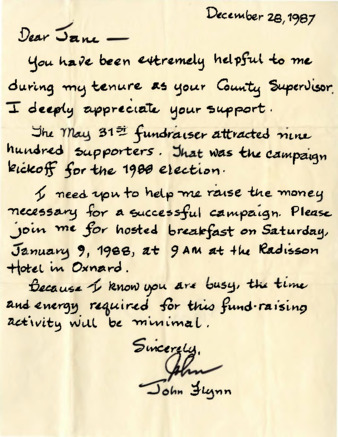 December 28, 1987
Dear Jane —
You have been extremely helpful to me
during my tenure as your County Supervisor.
I deeply appreciate your support.
The May 31st fundraiser attracted nine
hundred supporters. That was the campaign
kickoff for the 1988 election.
I need you to help me raise the money
necessary for a successful campaign. Please
join me for hosted breakfast on Saturday,
January 9, 1988, at 9 AM at the Radisson
Hotel in Oxnard.
Because I know you are busy, the time
and energy required for this fund-raising
activity will be minimal.
Sincerely,
John
John Flynn